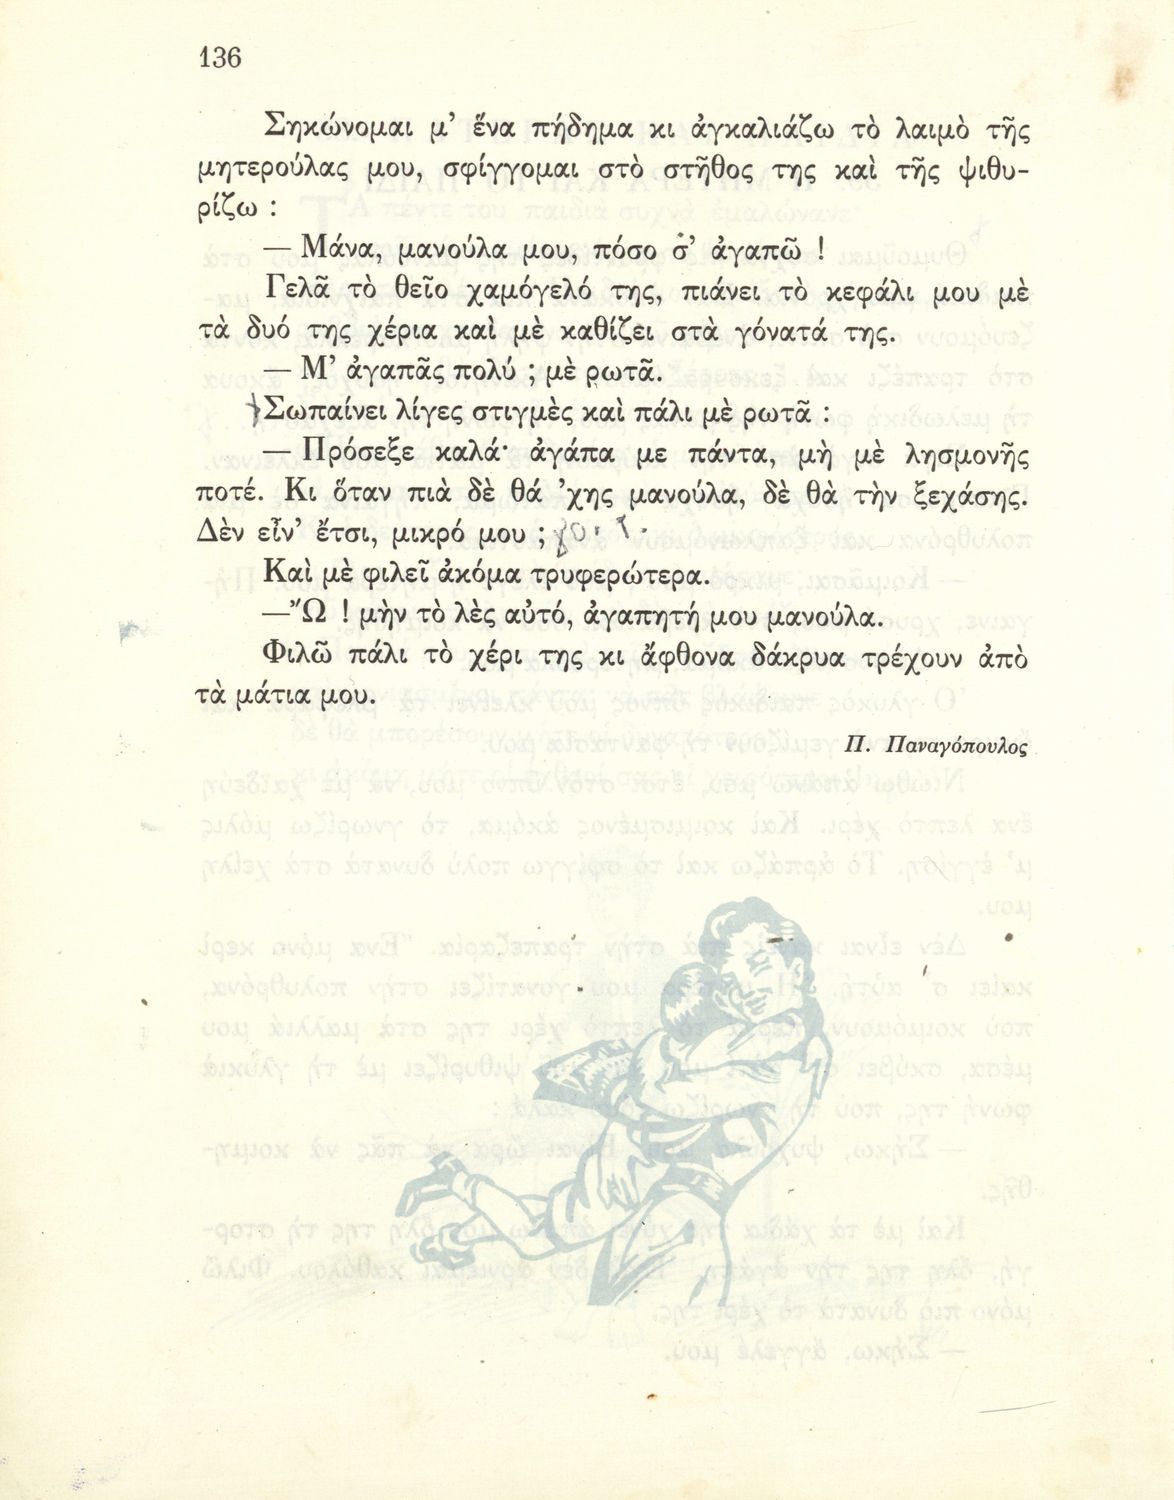 136
Σηκώνομαι μ’ ἕνα πήδημα κι ἀγκαλιάζω τὸ λαιμὸ τῆς
μητερούλας μου, σφίγγομαι στὸ στῆθος της καὶ τῆς ψιθυ-
ρίζω :
— Μάνα, μανούλα μου, πόσο σ’ ἀγαπῶ !
Γελᾶ τὸ θεῖο χαμόγελό της, πιάνει τὸ κεφάλι μου μὲ
τὰ δυό της χέρια καὶ μὲ καθίζει στὰ γόνατά της.
— Μ’ ἀγαπᾶς πολύ ; μὲ ρωτᾶ.
Σωπαίνει λίγες στιγμὲς καὶ πάλι μὲ ρωτᾶ :
— Πρόσεξε καλά· ἀγάπα με πάντα, μὴ μὲ λησμονῆς
ποτέ. Κι ὅταν πιὰ δὲ θά ’χης μανούλα, δὲ θὰ τὴν ξεχάσης.
Δὲν εἶν’ ἔτσι, μικρό μου ;
Καὶ μὲ φιλεῖ ἀκόμα τρυφερώτερα.
—Ὤ ! μὴν τὸ λὲς αὐτό, ἀγαπητή μου μανούλα.
Φιλῶ πάλι τὸ χέρι της κι ἄφθονα δάκρυα τρέχουν ἀπὸ
τὰ μάτια μου.
Π. Παναγόπουλος